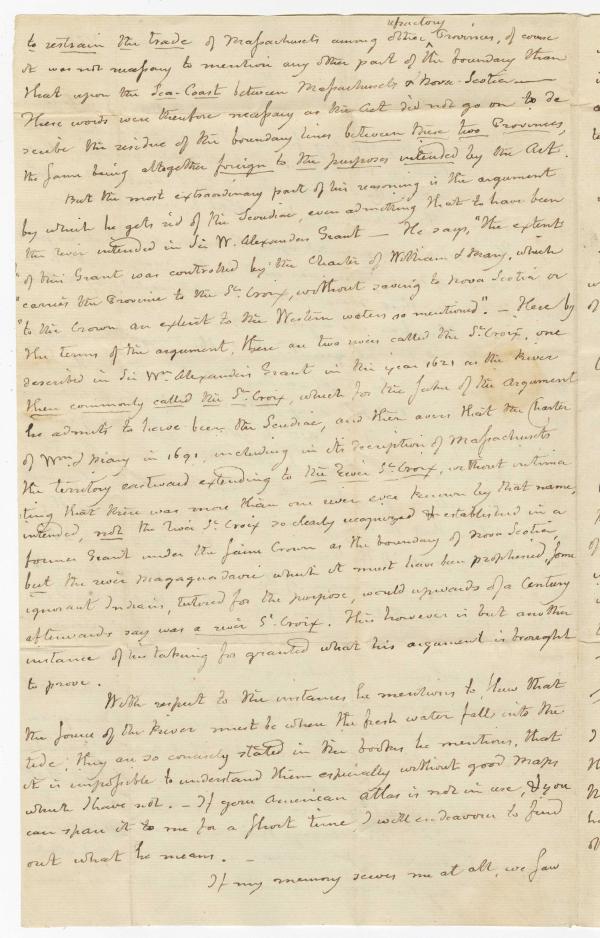 refractory
to restrain the trade of Massachusets among other ^ Provinces, of course
it was not necessary to mention any other part of the boundary than
that upon the Sea-Coast between Massachusets & Nova-Scotia—
These words were therefore necessary as the Act did not go on to de
scribe the residue of the boundary lines between these two Provinces,
the same being altogether foreign to the purposes intended by the Act.
But the most extraordinary part of his reasoning is the argument
by which he gets rid of the Scoudiac, even admitting that to have been
the river intended in Sir W. Alexanders Grant — He says, "the extent
"of this Grant was controlled by the Charter of William & Mary, which
"carries the Province to the St. Croix, without saving to Nova Scotia or
"to the Crown an extent to the Western waters so mentioned". — Here by
the terms of the argument, there are two rivers called the St. Croix, one
described in Sir Wm. Alexanders Grant in the year 1621 as the River
then commonly called the St. Croix, which for the sake of the argument
he admits to have been the Scudiac, and then avers that the Charter
of Wm. & Mary in 1691, including in its description of Massachusets
the territory eastward extending to the River St. Croix, without intima
ting that there was more than one river ever known by that name,
intended, not the river St. Croix so clearly recognized & established in a
former Grant under the same Crown as the boundary of Nova Scotia,
but the river Magaguadavic which it must have been prophesied, some
ignorant Indians, tutored for the purpose, would upwards of a Century
afterwards say was a river St. Croix. This however is but another
instance of his taking for granted what his argument is brought
to prove.
With respect to the instances he mentions to shew that
the source of the River must be where the fresh water falls into the
tide, they are so concisely stated in the books he mentions, that
it is impossible to understand them especially without good Maps
which I have not. — If your American atlas is not in use, & you
can spare it to me for a short time I will endeavour to find
out what he means. —
If my memory serves me at all, we saw